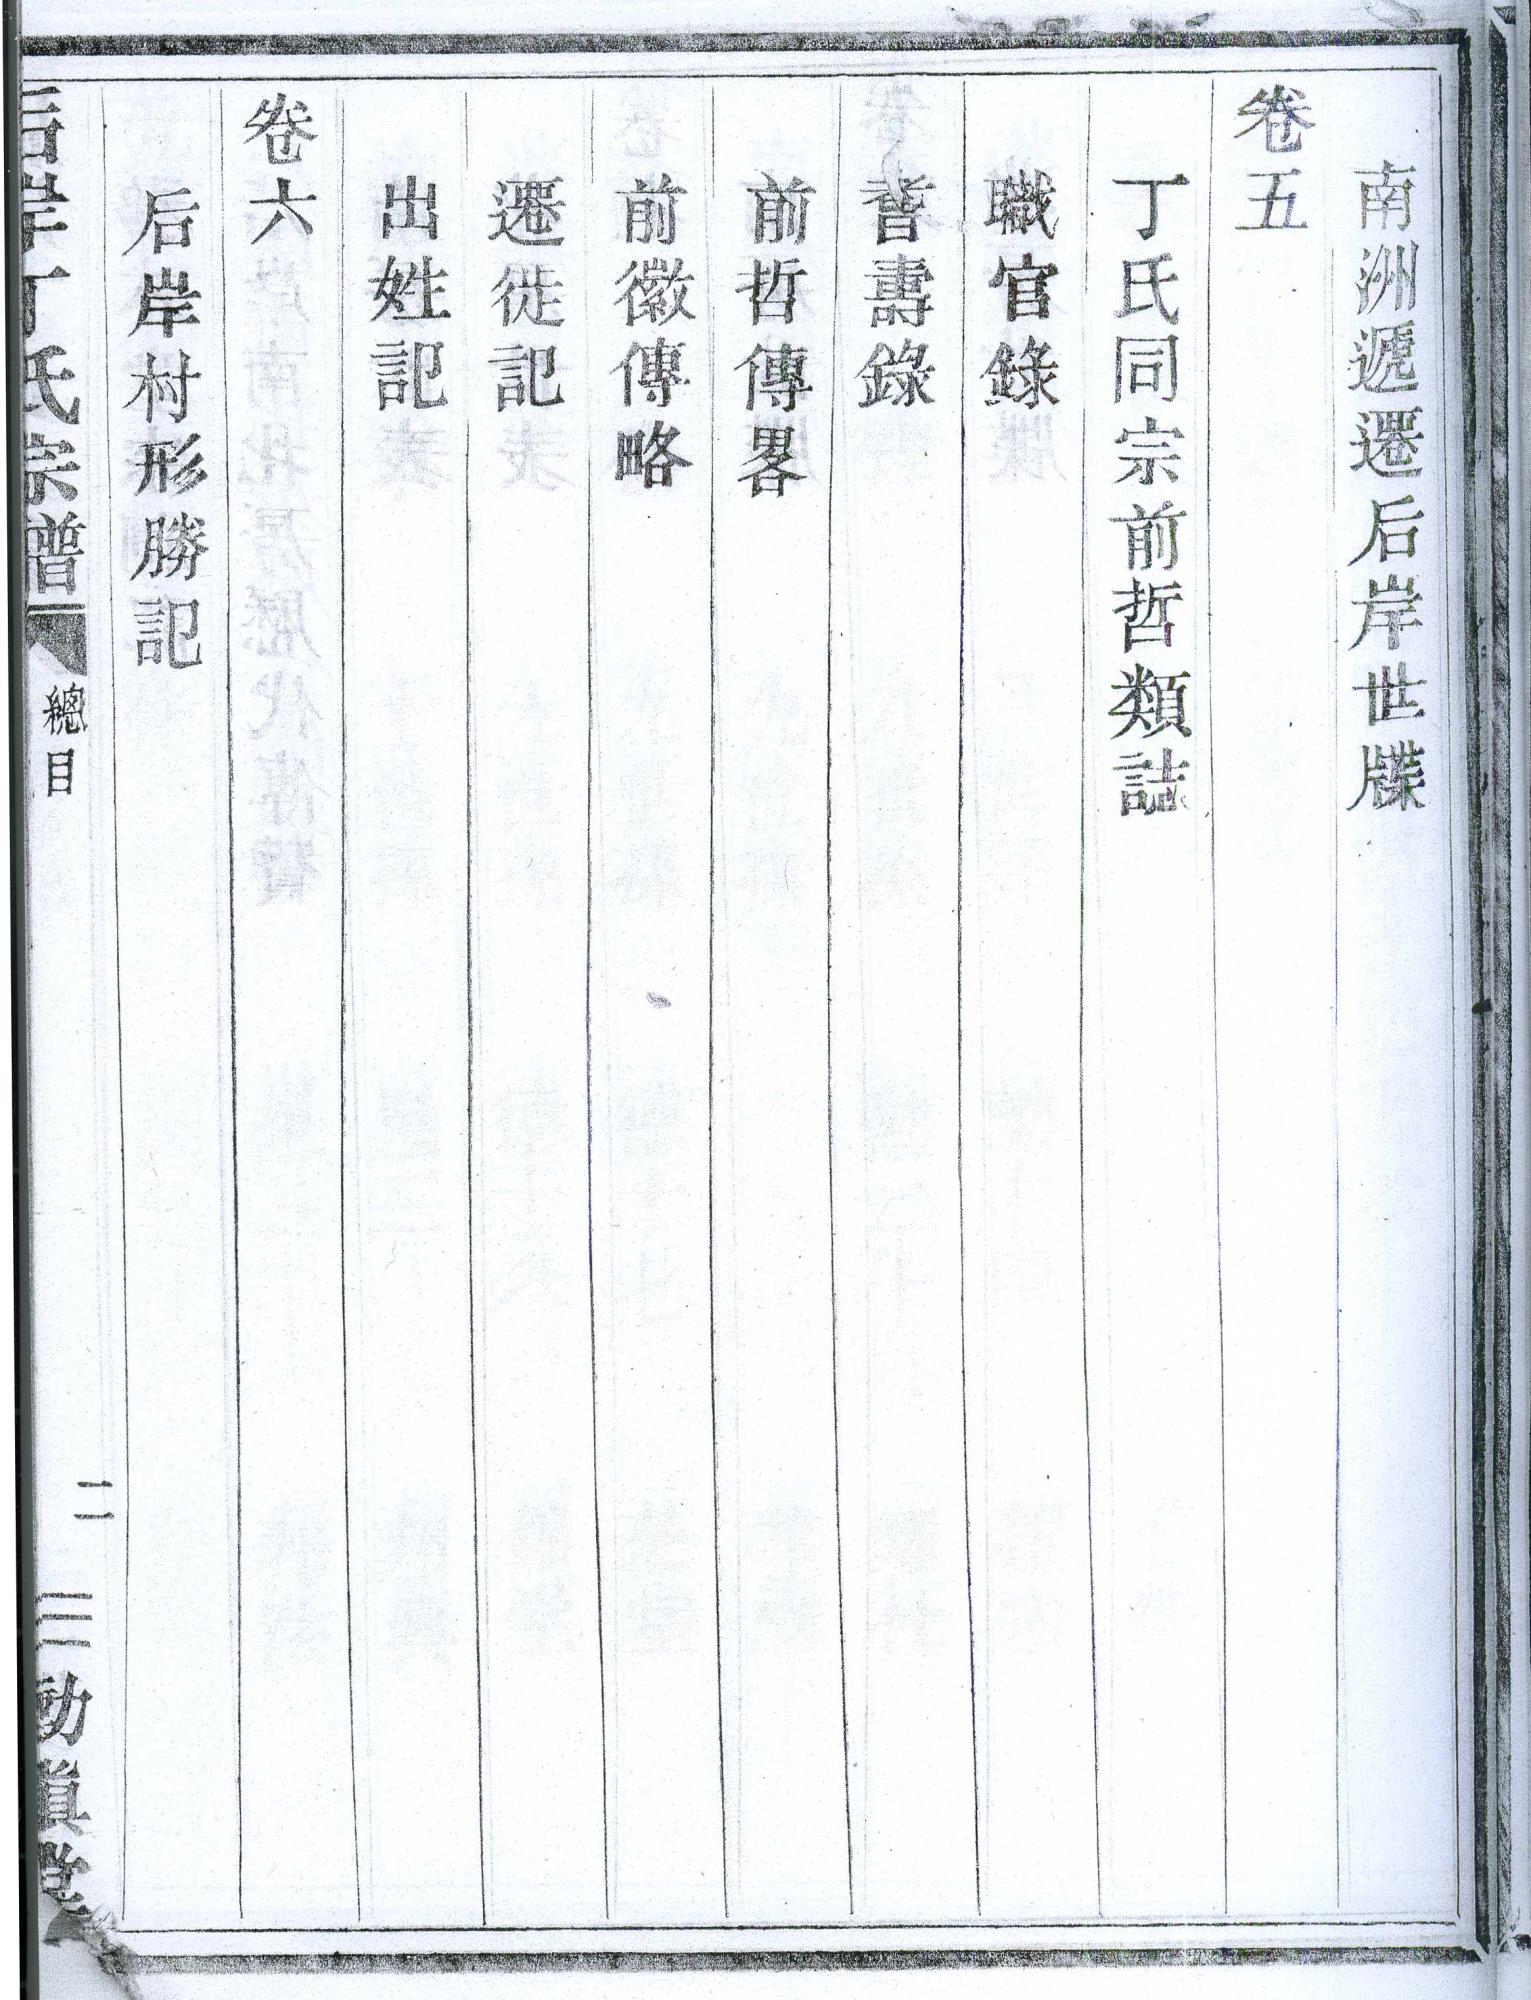 南洲遞遷后岸世牒
卷五
丁氏同宗前哲類誌
職官錄
耆壽錄
前哲傳畧
前徽傳略
遷徙記
出姓記
卷六
后岸村形勝記
后岸丁氏宗譜
總目
二